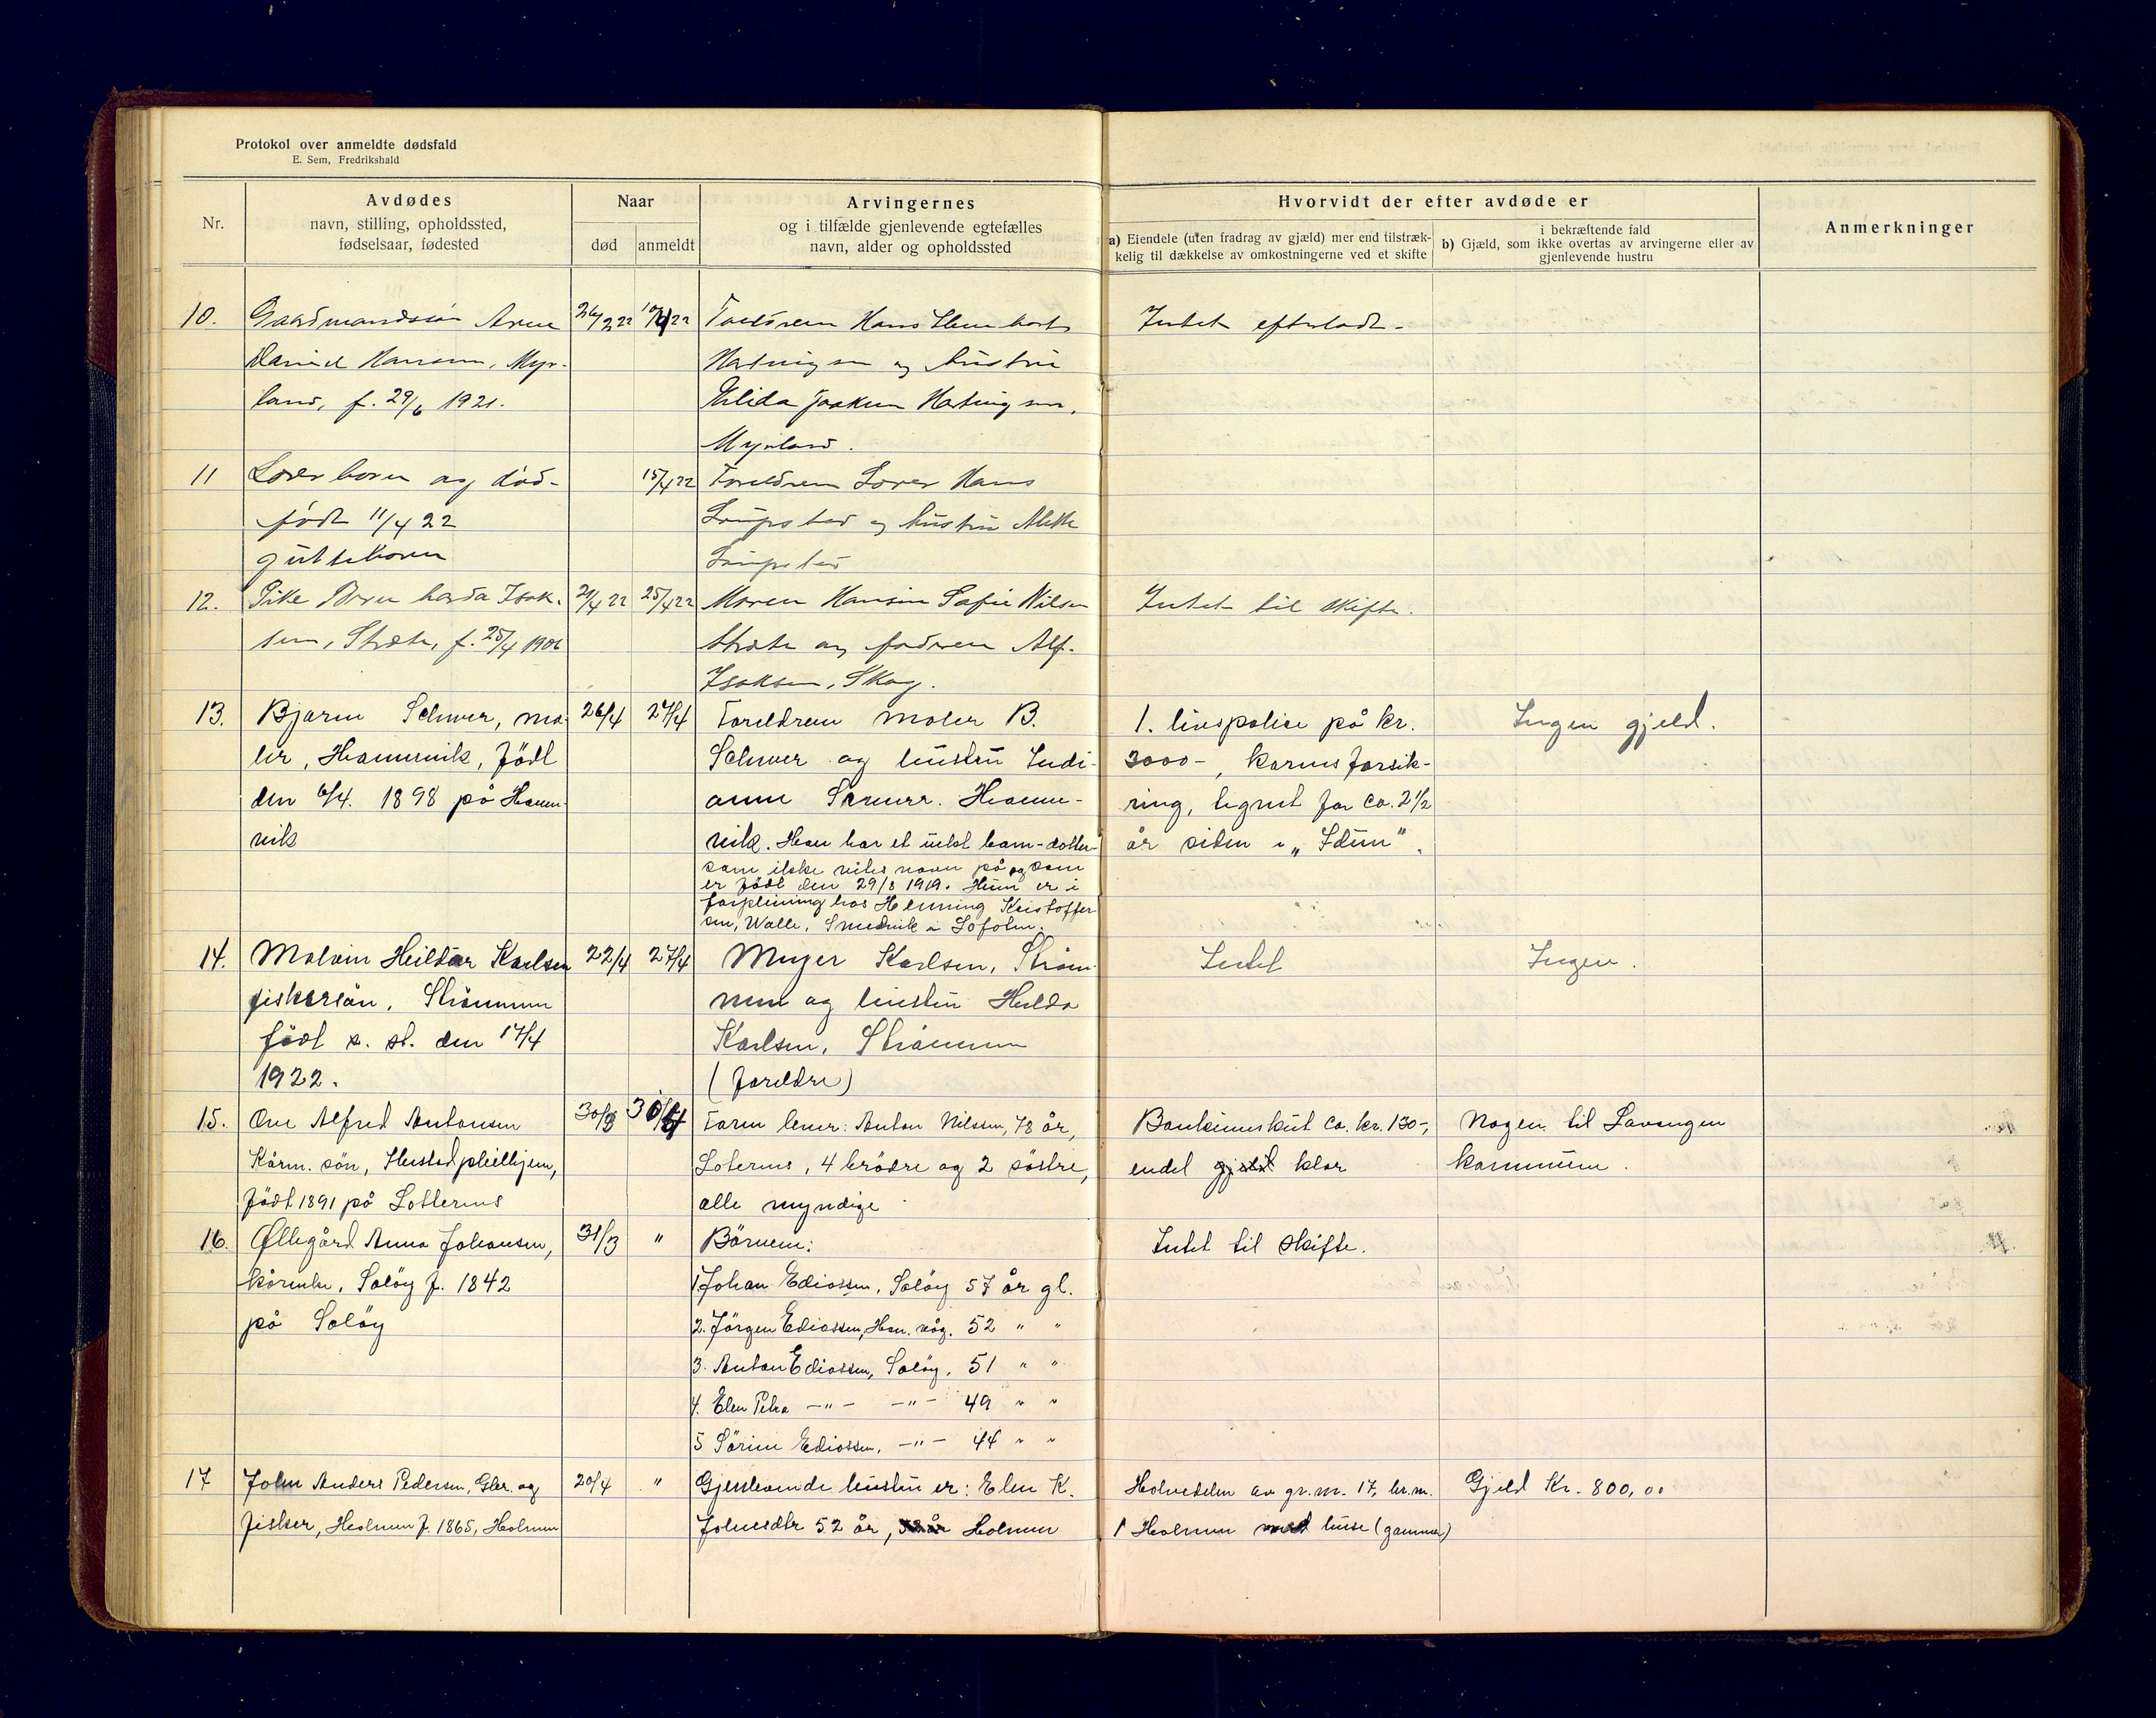 Protokol over anmeldte dødsfald
E. Sem, Fredrikshald
Nr.
Avdødes
navn, stilling, opholdssted,
fødselsaar, fødested
Naar
død
anmeldt
Arvingernes
og i tilfælde gjenlevende egtefælles
navn, alder og opholdssted
Hvorvidt der efter avdøde er
a) Eiendele (uten fradrag av gjæld) mer end tilstræk-
kelig til dækkelse av omkostningerne ved et skifte
i bekræftende fald
b) Gjæld, som ikke overtas av arvingerne eller av
gjenlevende hustru
Anmerkninger
10. Gaardmandssøn Arne
Daniel Hansen, Myr-
land, f. 29/6 1921.
26/2 22
22
Forældrene Hans
og hustru
Hartvigsen,
Myrland.
Intet efterladt.
11
og død-
født 11/4 22
guttebarn
15/4 22
Forældrene Hans
og hustru
12. Pike Isak-
sen, f. 25/4 1906
22
25/4 22
Moren Hansine Sofie Nilsen
og faderen Alf.
Isaksen, Skog.
Intet til skifte.
13. Bjarne ma-
ler, Hamnvik, født
den 6/4. 1898 på Hamn-
vik
26/4
27/4
Foreldrene maler B.
og hustru
Hamn-
vik. Han har et uekt barn - datter -
som ikke vites navn på og som
er født den 29/8 1919. Hun er i
forpleining hos Henning Kristoffer
sen, Valle, i Lofoten.
1. livspolise på kr.
3000-,
ring, tegnet for ca. 2 1/2
år siden i „Idun".
Ingen gjeld.
14. Malvin Heildar Karlsen
fiskersön, Strömmen
födt s. st. den 17/4
1922.
22/4
27/4
Meyer Karlsen, Ström-
men og hustru Hulda
Karlsen, Strömmen
(foreldre)
Intet
Ingen.
15. Ove Alfred Antonsen
Kårm. sön, Hustad pleiehjem,
födt 1891 på
30/3
30/4
Faren lever: Anton Nilssen, 78 år,
4 brödre og 2 söstre,
alle myndige
Bankinnskut ca. kr. 130-,
endel klær
Nogen til Lavangen
kommune.
16. Øllegård Anna Johansen,
kårenke, Saløy f. 1842
på Saløy
31/3
"
Börnene:
1 Johan Ediassen, Saløy 57 år gl.
2. Jörgen Ediassen, Ham. våg. 52 " "
3. Anton Ediassen, Saløy, 51 " "
4. Elen Petra —"— —"— 49 " "
5 Sörine Ediassen, —"— 44 " "
Intet til skifte.
17 John Anders Pedersen, Gbr. og
fisker, Holmen f. 1865, Holmen
20/4
"
Gjenlevende hustru er: Elen K.
Johnsdtr 52 år, Holmen
Halvdelen av gr. nr. 17, br. nr.
1 Holmen med huse (gammer)
Gjeld Kr. 800,00